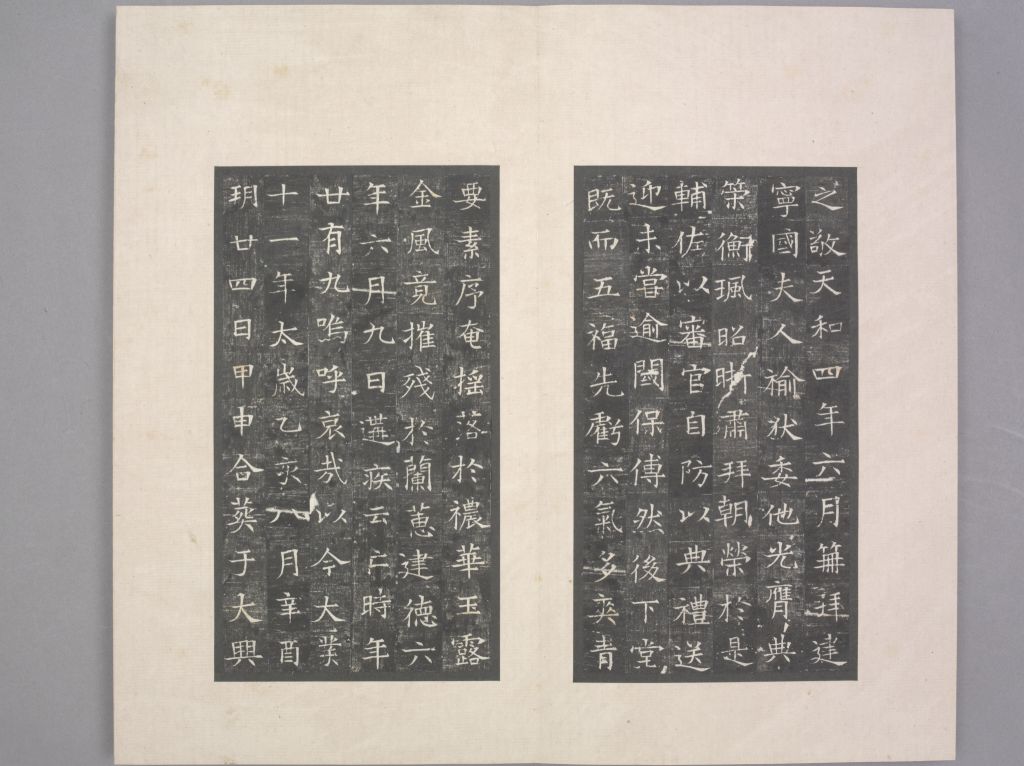 之敬天和四年六月筞拜建
寧國夫人褕狄委他光膺典
策衡珮昭晣肅拜朝榮於是
輔佐以審官自防以典禮送
迎未嘗逾閾保傅然後下堂
既而五福先虧六氣多爽青
要素序奄搖落於穠華玉露
金風竟摧殘於蘭蕙建德六
年六月九日遘疾云亡時年
廿有九嗚呼哀哉以今大業
十一年太歲乙亥八月辛酉
朔廿四日甲申合葬于大興